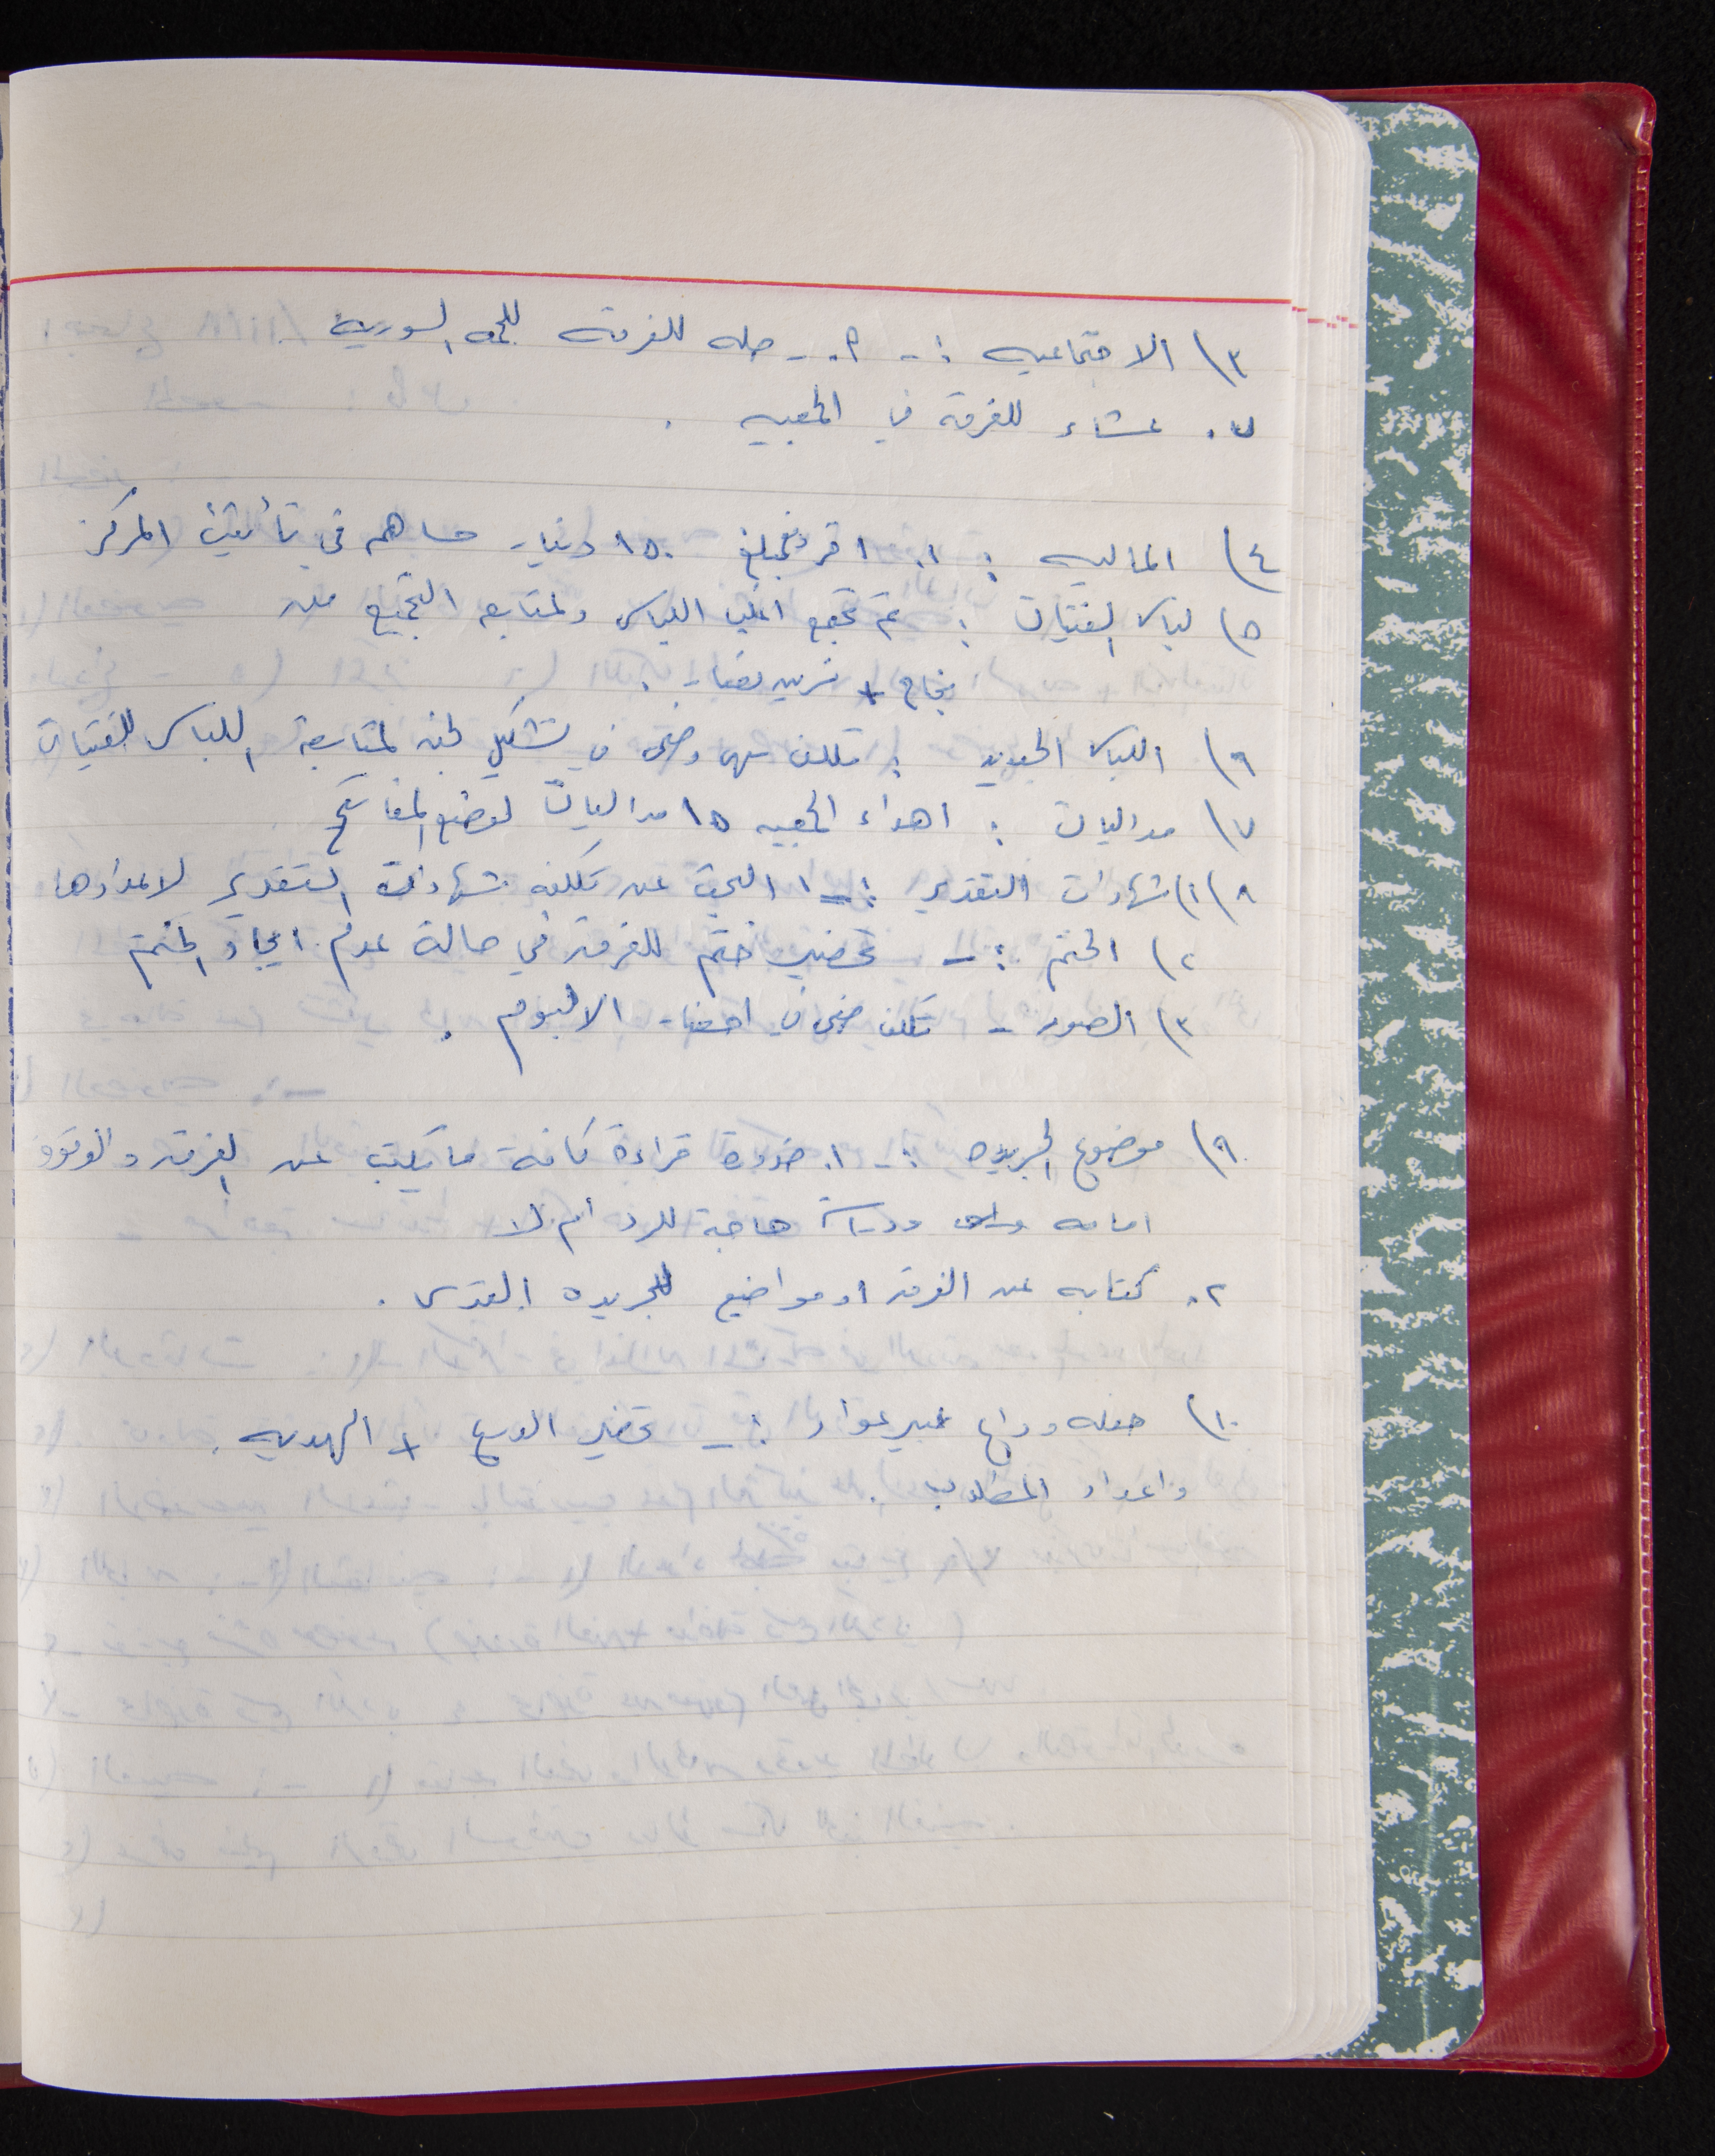 ٣) الاجتماعيه :- ٩.- رحله للفرقه للحمه السوريه
٧. عشاء للفرقة في الجمعيه .
٤) الماليه : ١. اقر مبلغ ١٥٠ دينار ساهم في تأثيث المركز
٥) لباس الفتيات : تم تجميع اغلب اللباس ولمتابعه التجميع من
نجاح + نسرين نصار .
٦) اللباس الجديد : تكلف سهى وضحى في تشكيل لجنه لمتابعة اللباس للفتيات
٧) مداليات : اهداء الجمعيه ١٥ مداليات لوضع المفاتيح
٨) ١) شهادات التقدير :- ١ البحث عن تكلفه شهادات التقدير لاعدادها
٢) الختم :- تحضير ختم للفرقة في حالة عدم ايجاد الختم
٣) الصور - تكلف ضحى في احضار الالبوم .
٩) موضوع الجريده :- ١. ضرورة قراءة كافة ما يكتب عن الفرقه والوقوف
امامه ودراسة حاجة للرد أم لا
٢. كتابه عن الفرقه او مواضيع للجريده القدس .
١٠) حفله وداع عبير عواد :- تحضير الدرع + الهديه .
واعداد المطلوب .